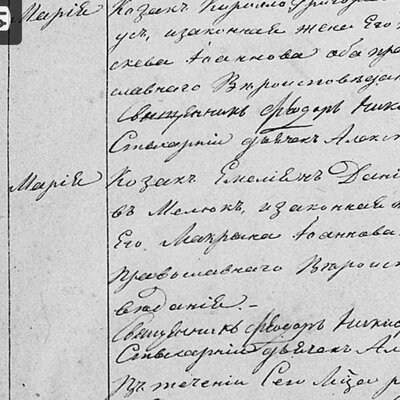 Марія Козак Кирилло Григор
усъ, изаконная жена Его
скева Іоаннова оба пра
славнаго Вѣроисповѣда
Священникъ Ѳеодоръ Ники
Стихарній дьячек Алекс
Марія Козак Емеліен Дані
въ Мелюк, изаконная
Его Макрына Іоаннова
православнаго Вѣроис
вѣданія. –
Священникъ Ѳеодоръ Ники
Стихарній дьячек Ал
Въ теченіи Сего Мѣсяца р